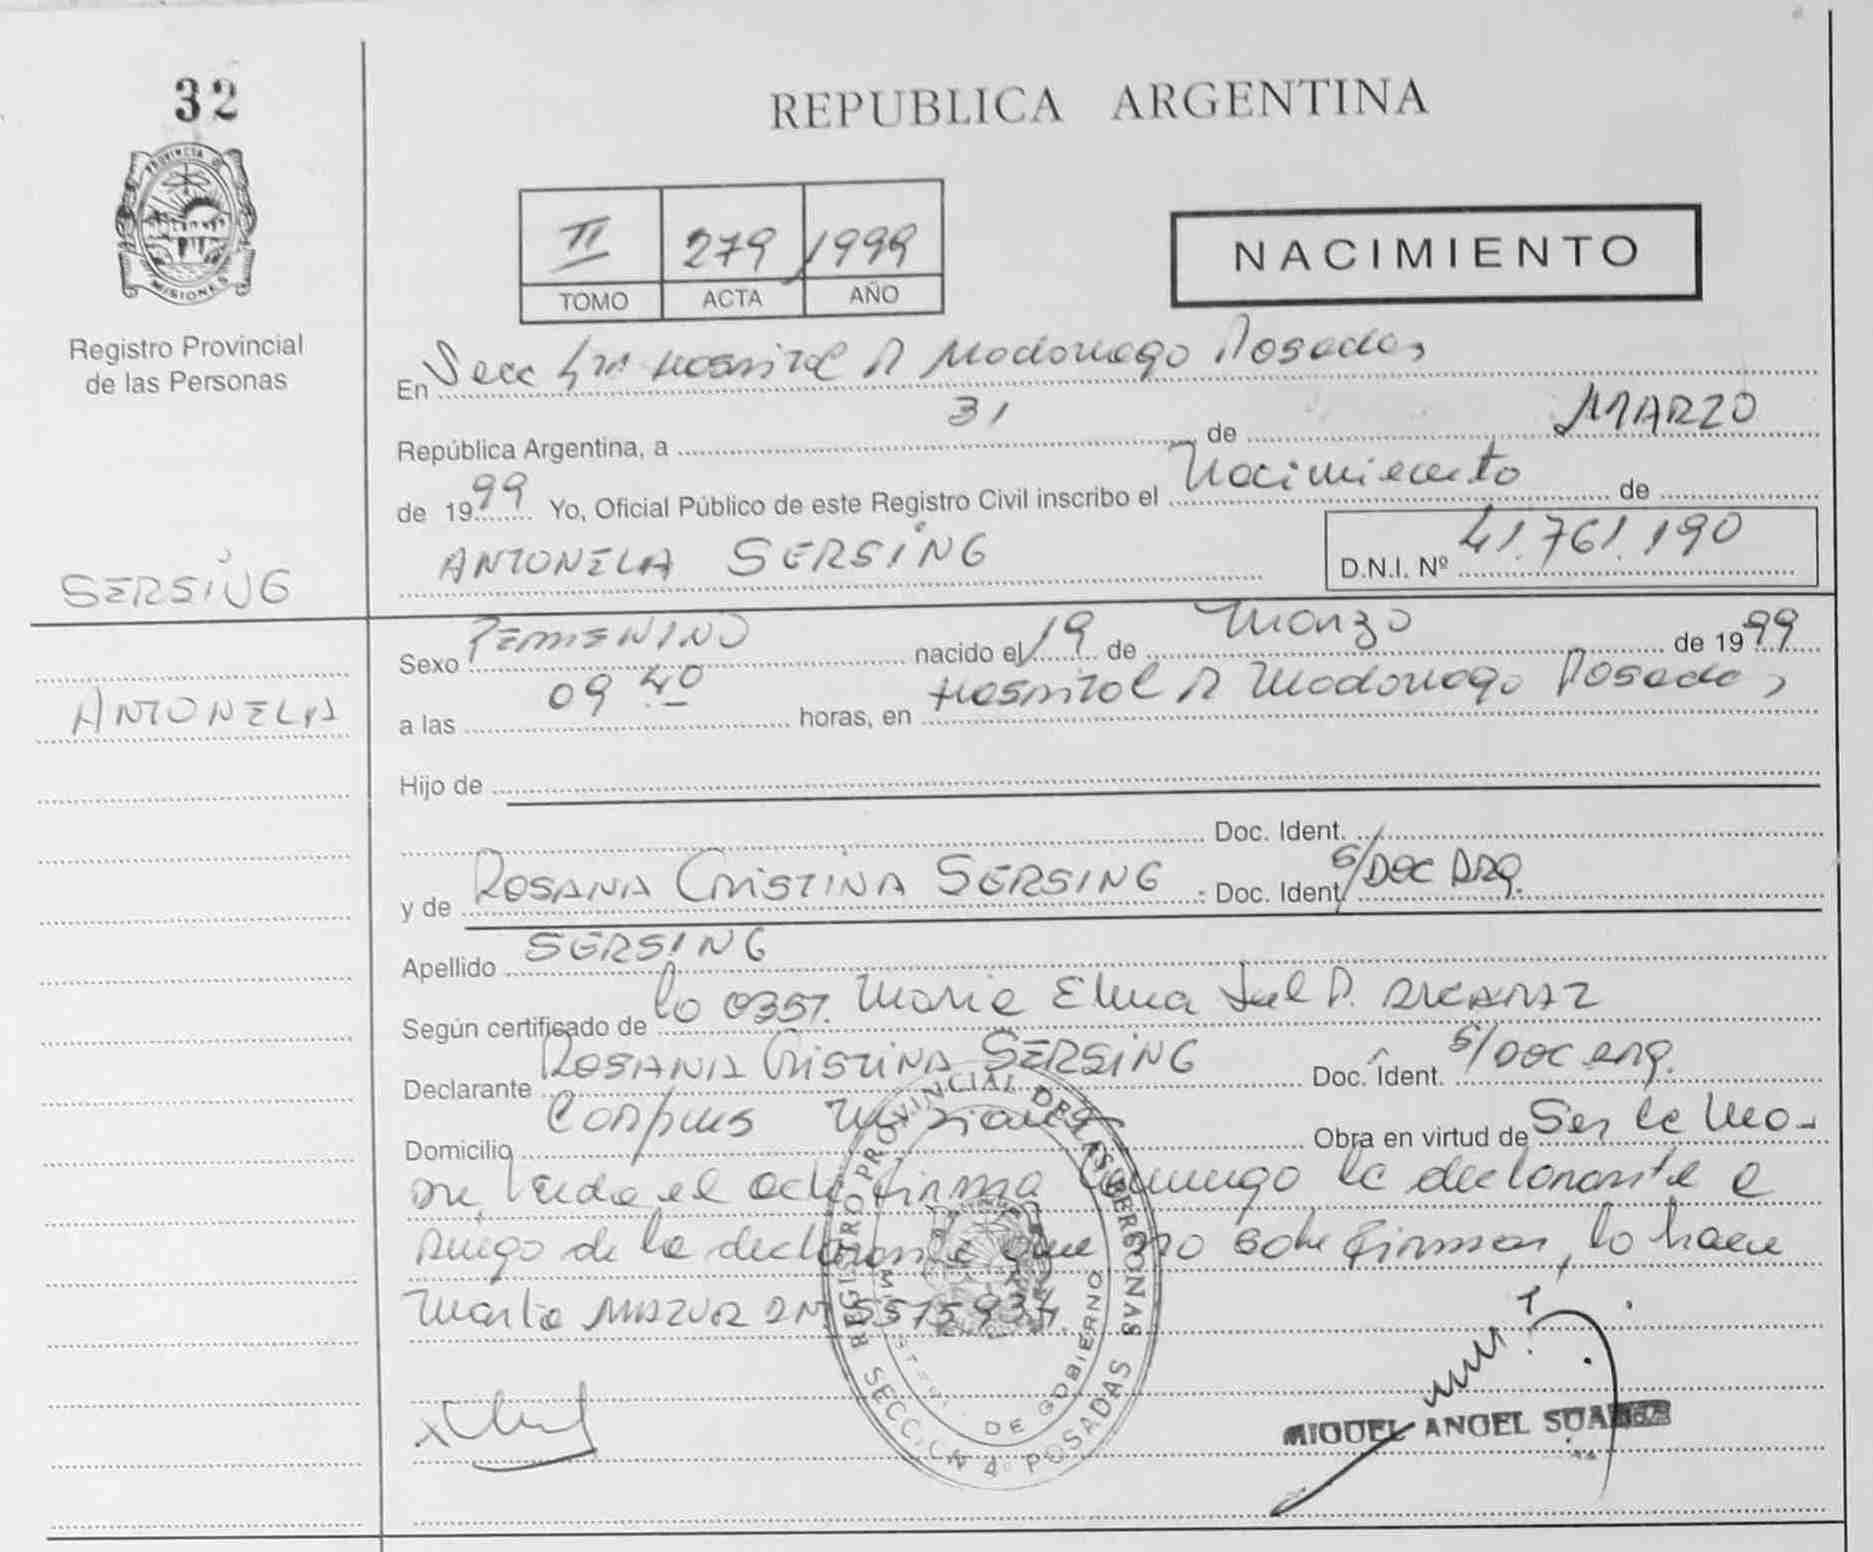 32
REPUBLICA ARGENTINA
PROVINCIA D
MISIONES
Registro Provincial
de las Personas
II 279 1999
TOMO ACTA AÑO
NACIMIENTO
En Secc Hospital R Madariaga Posadas
República Argentina, a 31 de MARZO
de 1999 Yo, Oficial Público de este Registro Civil inscribo el Nacimiento de
ANTONELA SERSING D.N.I. Nº 41.761.190
SERSING
ANTONELA
Sexo FEMENINO nacido el 19 de Marzo de 1999
a las 09 40 horas, en Hospital R Madariaga Posadas
Hijo de
Doc. Ident.
y de ROSANA CRISTINA SERSING Doc. Ident S/DOC ARG.
Apellido SERSING
Según certificado de la Obst. Maria Elena D. ALCARAZ
Declarante ROSANA CRISTINA SERSING Doc. Ident. S/DOC ARG.
Domicilio Corpus Misiones Obra en virtud de Ser la Ma-
dre, Leida el acta firma Conmigo la declarante a
Ruego de la declarante que no sabe firmar, lo hace
Marta MAZUR DNI 5575934
REGISTRO PROVINCIAL DE LAS PERSONAS
MINISTERIO DE GOBIERNO
SECCION 4 POSADAS
MIGUEL ANGEL SUAREZ